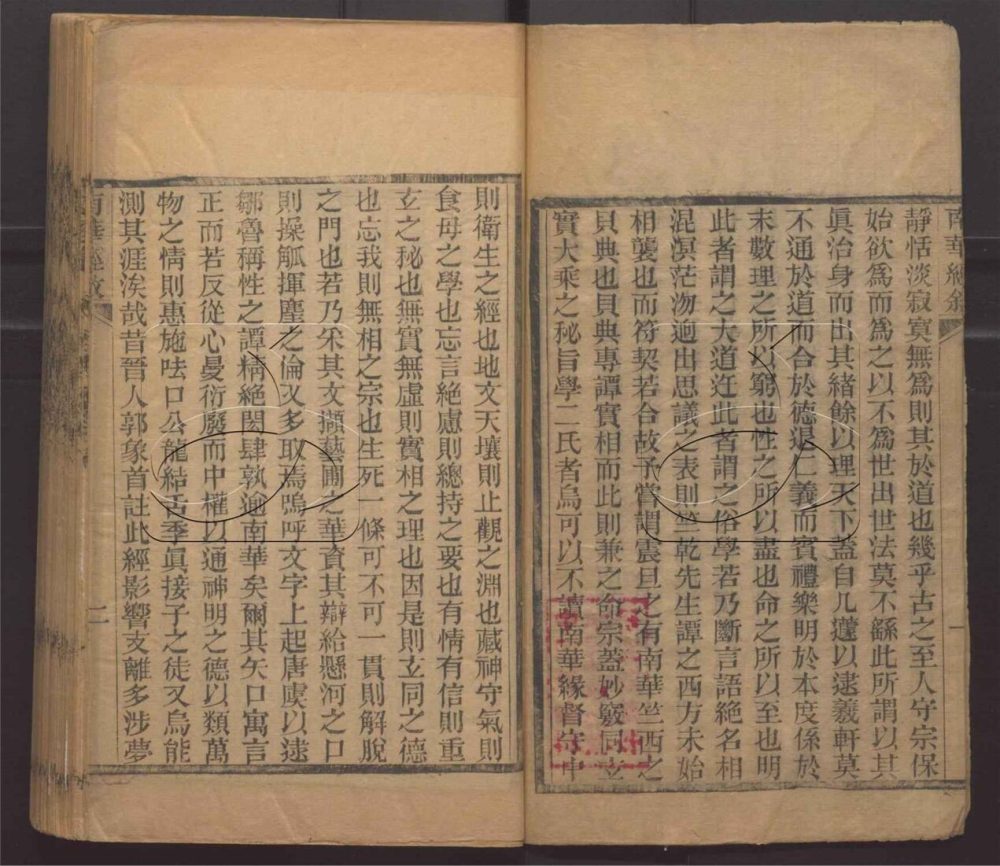 南華經敘
一
靜恬淡寂寞無爲則其於道也幾乎古之至人守宗保
始欲爲而爲之以不爲世出世法莫不繇此所謂以其
眞治身而出其緒餘以理天下蓋自几蘧以逮羲軒莫
不通於道而合於德退仁義而賓禮樂明於本度係於
末數理之所以窮也性之所以盡也命之所以至也明
此者謂之大道迕此者謂之俗學若乃斷言語絕名相
混溟茫沕逈出思議之表則竺乾先生譚之西方未始
相襲也而符契若合故予嘗謂震旦之有南華竺西之
貝典也貝典專譚實相而此則兼之命宗蓋妙竅同玄
實大乘之秘旨學二氏者烏可以不讀南華緣督守中
則衛生之經也地文天壤則止觀之淵也藏神守氣則
食母之學也忘言絕慮則總持之要也有情有信則重
玄之秘也無實無虛則實相之理也因是則玄同之德
也忘我則無相之宗也生死一條可不可一貫則解脫
之門也若乃采其文擷藝圃之華資其辯給懸河之口
則操觚揮麈之倫又多取焉嗚呼文字上起唐虞以逮
鄒魯稱性之譚精絕閎肆孰逾南華矣爾其矢口寓言
正而若反從心曼衍廢而中權以通神明之德以類萬
物之情則惠施呿口公龍結舌季眞接子之徒又烏能
測其涯涘哉昔晉人郭象首註此經影響支離多涉夢
南華經敘
二